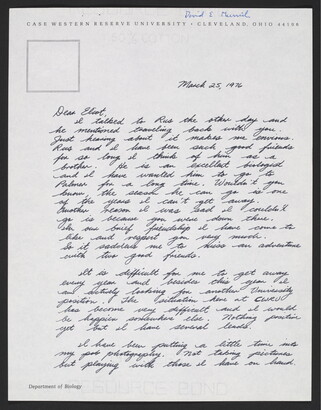 David E. Murrish
CASE WESTERN RESERVE UNIVERSITY • CLEVELAND, OHIO 44106
March 25, 1976
Dear Eliot,
I talked to Rus the other day and
he mentioned traveling back with you.
Just hearing about it makes me envious.
Rus and I have been such good friends
for so long I think of him as a
brother. He is an excellent biologist
and I have wanted him to go to
Palmer for a long time. Wouldn't you
know, the season he can go is one
of the years I can't get away.
Another reason I was sad I couldn't
go is because you were down there.
In our brief friendship I have come to
like and respect you very much.
So it saddens me to miss an adventure
with two good friends.
It is difficult for me to get away
every year and besides this year I
am actively looking for another University
position. The situation here at CWRU
has become very difficult and I would
be happier somewhere else. Nothing positive
yet but I have several leads.
I have been putting a little time into
my job photography. Not taking pictures
but playing with those I have on hand.
Department of Biology